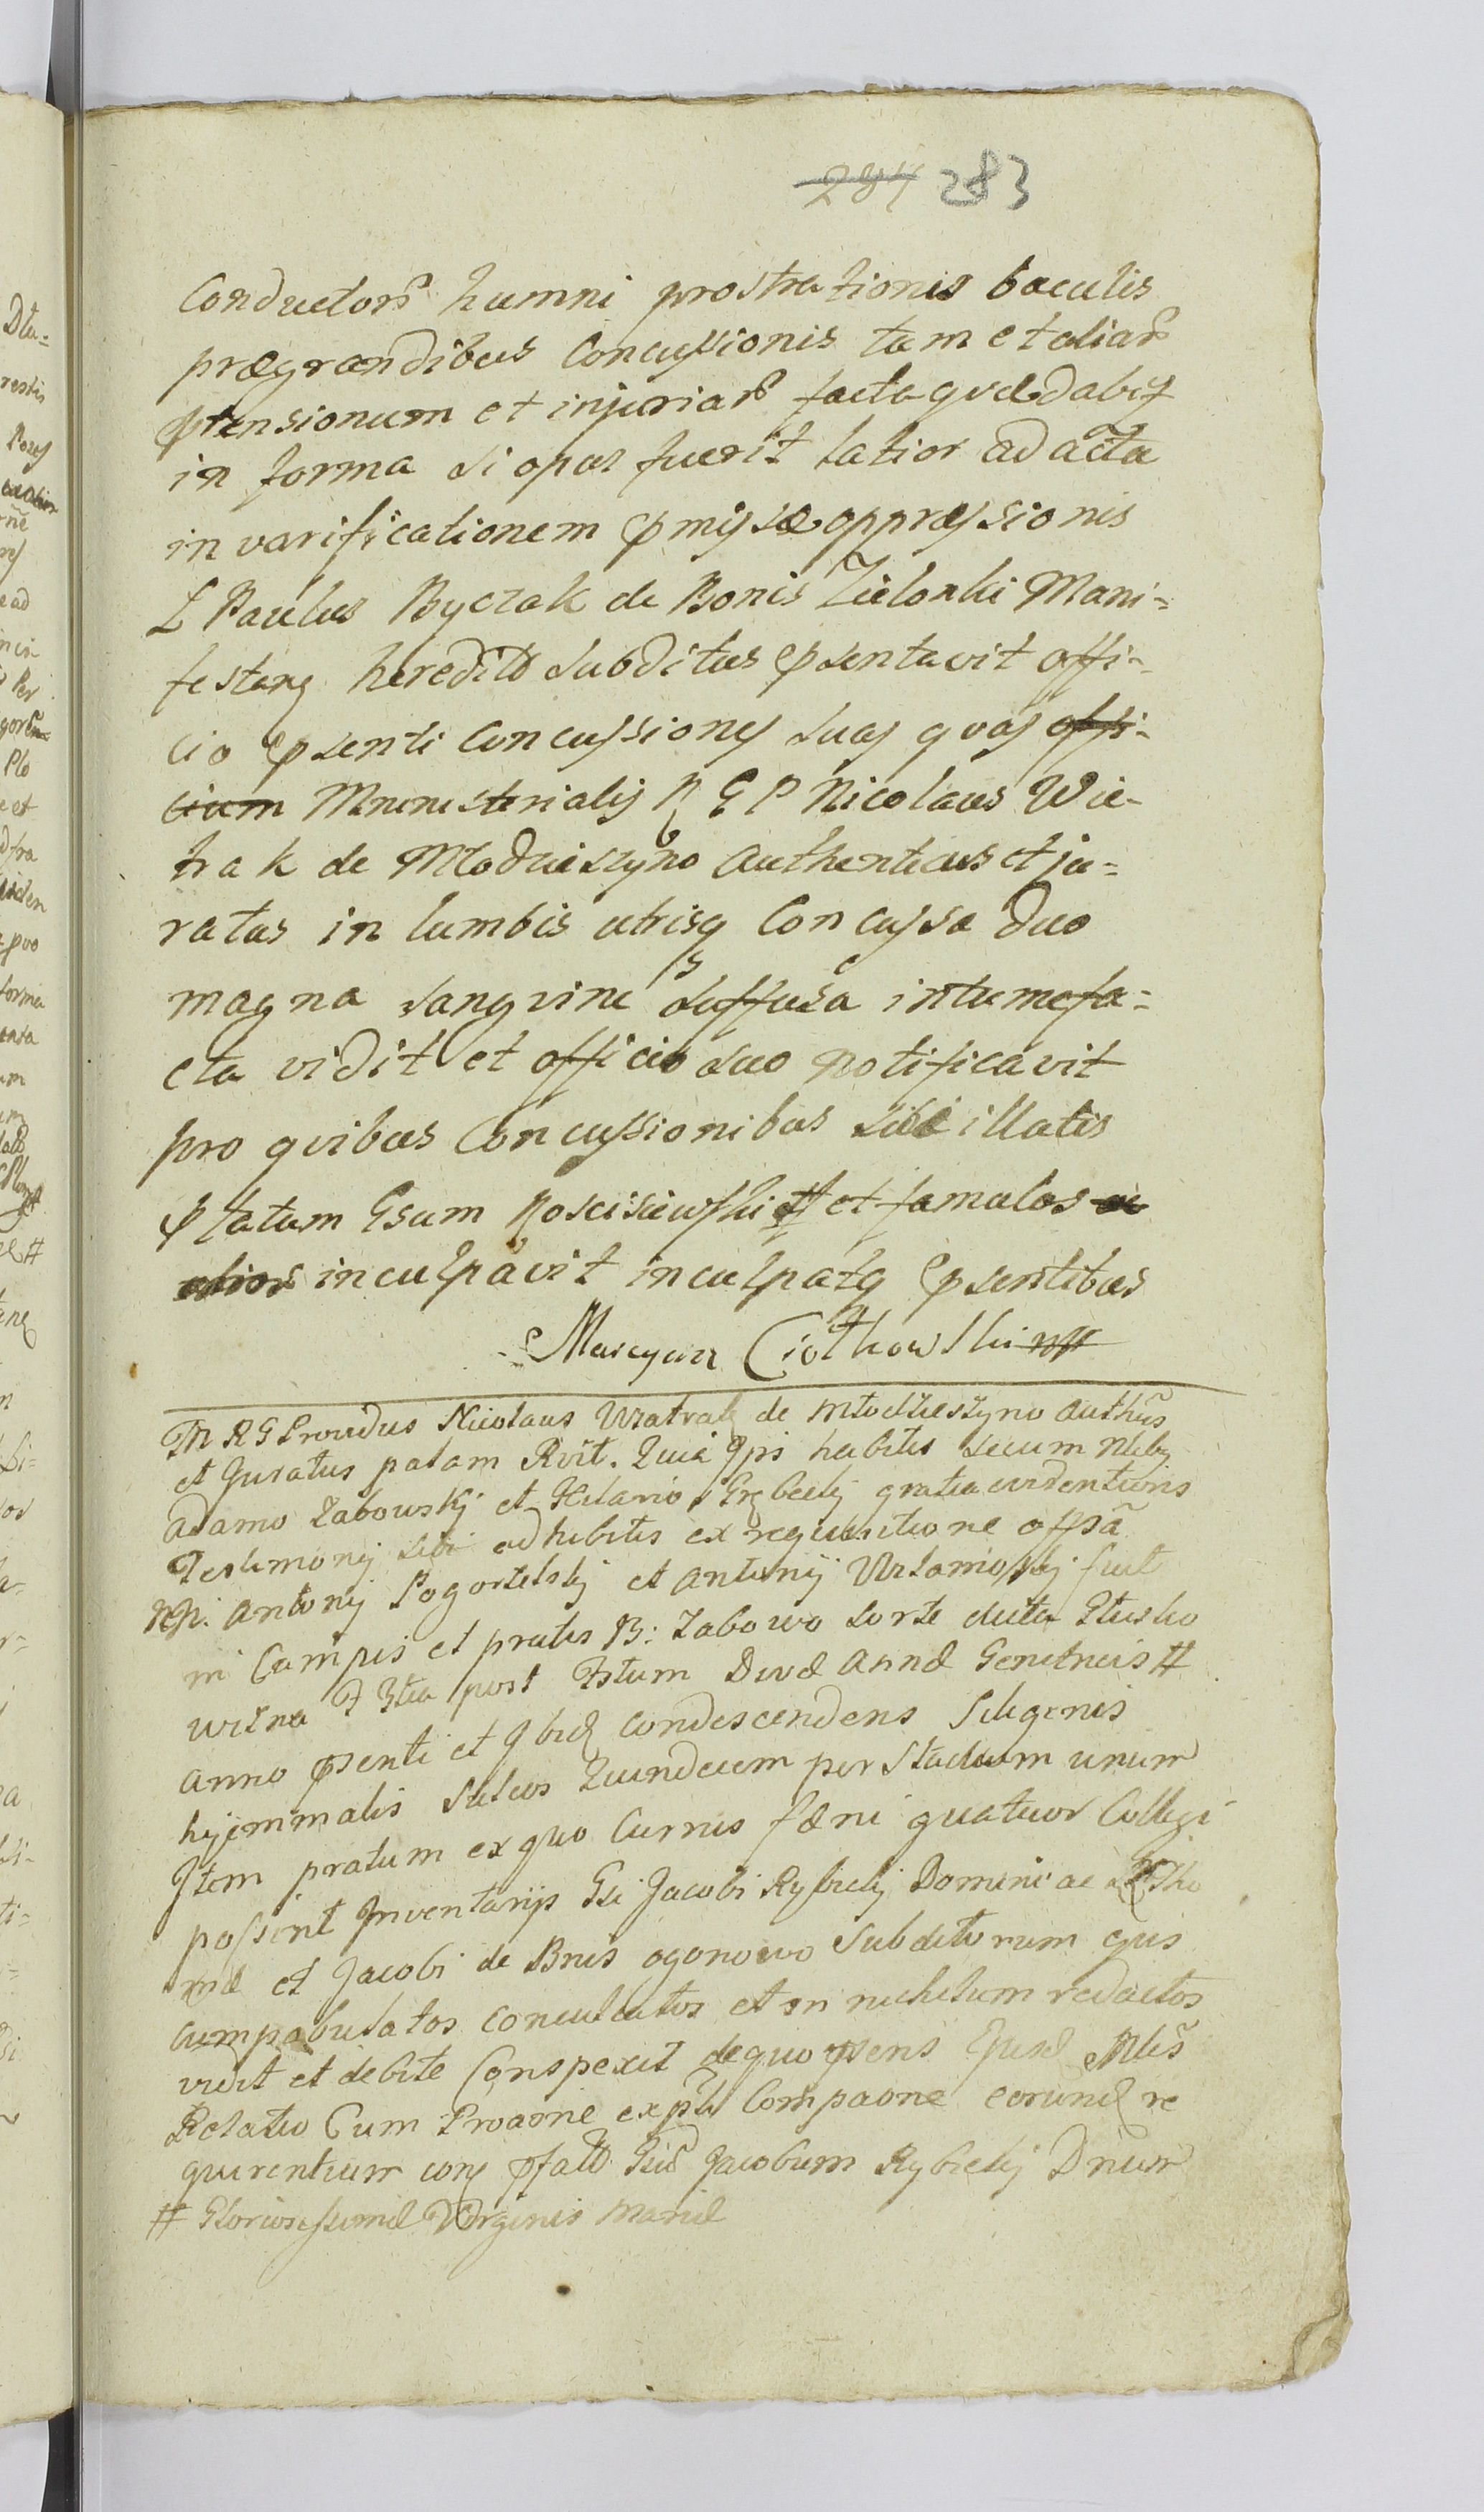 284 283
Conductor humni prostrationis baculis
prægrandibus Concussionis tam et aliar
ptensionum et injuriar facta qvæ dabit
in forma si opus fuerit latior ad acta
in varificationem pmissæ oppræssionis
L Paulus Byczak de Bonis Zielonki Mani=
festang heredit subditus psentavit offi-
cio psenti Concussiones suas qvas offi-
cium Mninisterialis R G P Nicolaus Wia-
trak de Młodzieszyno Authenticus et ju=
ratus in lumbis utrisq Concussa duo
magna sangvine suffusa intumefa=
cta vidit et officio suo notificavit
pro qvibus Concussionibus sibi illatis
platum Gsum Rosciszewski # et famulos
alios inculpavit inculpatq psentibus
Marcyan Ciołkowski
M R G Providus Nicolaus Wiatrak de Młodzieszyno Authus
et Juratus palam Rvit. Quia ipsi habitis secum Nbilibus
Adamo Zabowskj et Hilario Grębeckj gratia evidentioris
Testimonij sibi adhibitis ex requisitione offsa
NN. Antonij Pogorzelskj et Antonij fuit
in Campis et pratis B: Zabowo sorte dicta Głusko
wizna post Fstum Divæ Annæ Genitricis #
Anno psenti et ibid condescendens Siliginis
hyemmalis sulcos Quindecim per Stadium unum
Item pratum ex quo Currus fæni quatuor Colligi
possent Inventarijs Gsi Jacobi Rybickj Domini ac
mæ et Jacobi de Bnis Ogonowo Subditorum ejus
Cumpabulatos conculcatos et in nichilum redactos
vidit et debite Conspexit de quo psens Ejusd Mlis
Relatio Cum Proaone ex pte Compaone eorund re
quirentium con pfatt Gsu Jacobum Rybickj Dnum
# Gloriosissimæ Virginis Mariæ